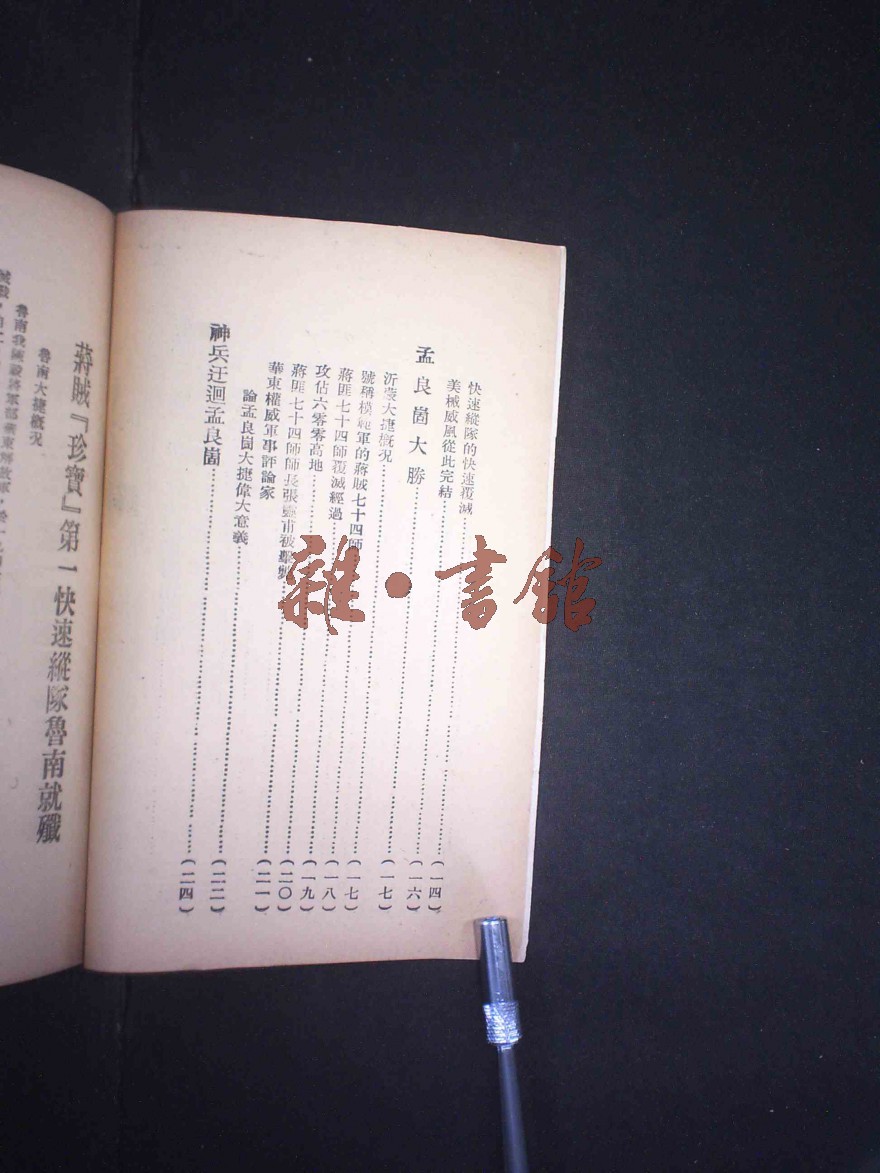 快速縱隊的快速覆滅……(一四)
美械威風從此完結……(一六)
孟良崮大勝……(一七)
沂蒙大捷概況……(一七)
號稱模範軍的蔣賊七十四師……(一八)
蔣匪七十四師覆滅經過……(一九)
攻佔六零零高地……(二〇)
蔣匪七十四師師長張靈甫被擊斃……(二一)
華東權威軍事評論家
論孟良崮大捷偉大意義……(二二)
神兵迂迴孟良崮……(二四)
蔣賊『珍寶』第一快速縱隊魯南就殲
魯南大捷概況
雜·書館